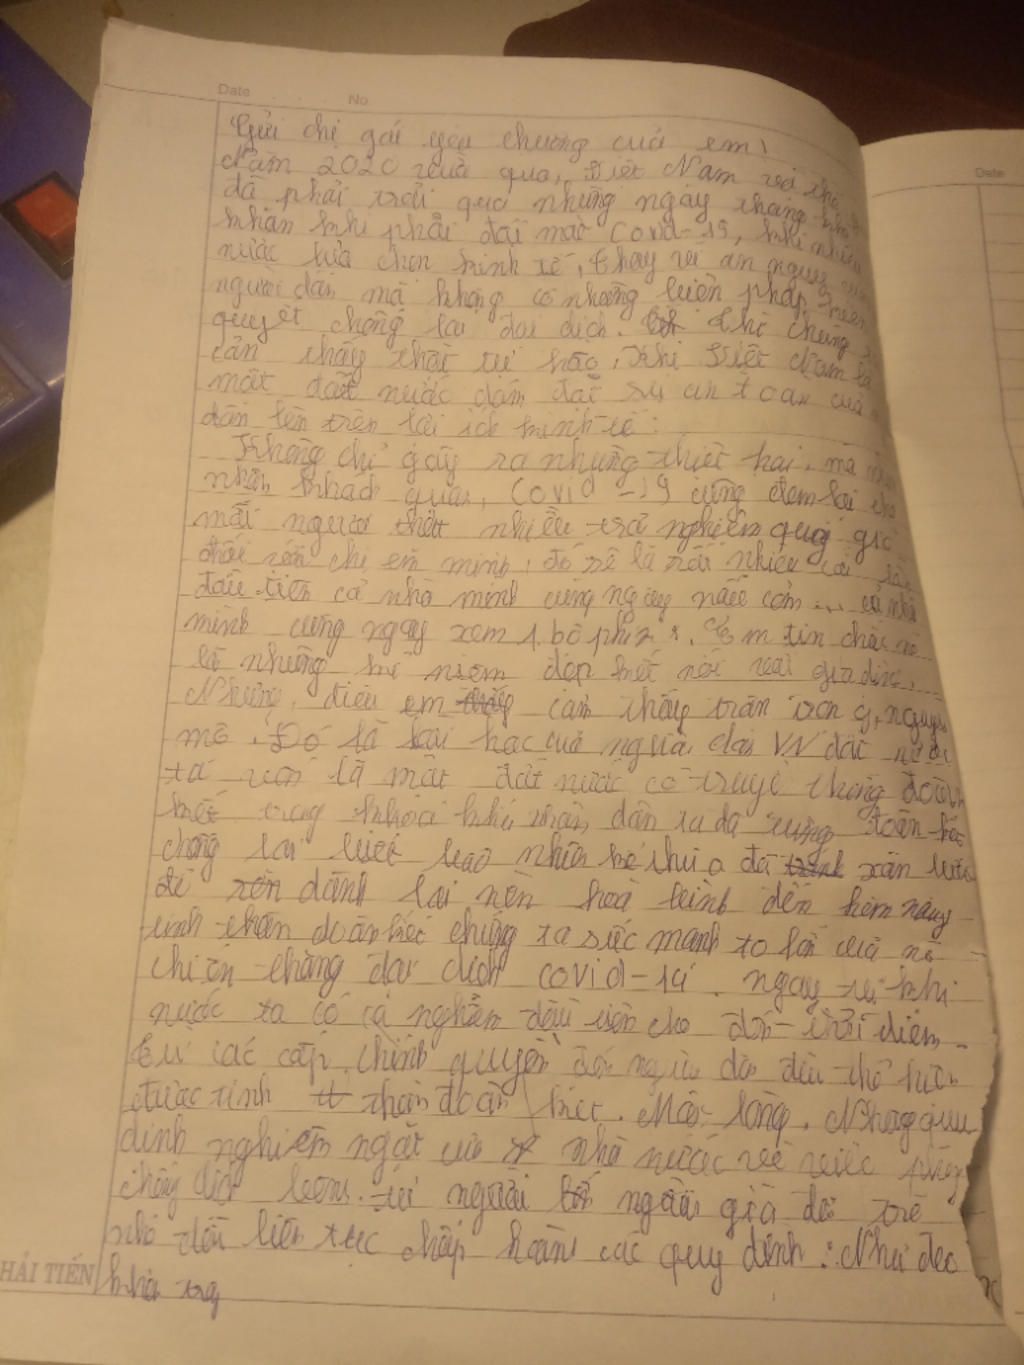 Date No
Gửi chị gái yêu thương của em!
Năm 2020 vừa qua, Việt Nam và thế
đã phải trải qua những ngày tháng khó
khăn khi phải đối mặt Covid-19, khi nhiều
nước lựa chọn kinh tế, thay vì an nguy
người dân mà không có những biện pháp
quyết chống lại đại dịch. thì chúng
cản thấy thật tự hào, khi Việt Nam là
một đất nước dám đặt sự an toàn của
dân lên trên lợi ích kinh tế.
Không chỉ gây ra những thiệt hại, mà
nhìn khách quan, Covid-19 cũng đem lại cho
mỗi người nhiều trải nghiệm quý giá
đối với chị em mình, đó sẽ là rất nhiều cái lần
đầu tiên cả nhà mình cùng ngày nấu cơm ... cả nhà
mình cùng ngày xem 1 bộ phim. Em tin chắc
là những kỉ niệm đẹp kết nối với gia đình.
Nhưng, điều em cảm thấy trân trọng, ngưỡng
mộ. Đó là bài học của người dân VN đất nước
ta vốn là một đất nước có truyề thống đoàn
kết trong nhân dân ta đã đoàn kết
chống lại biết bao nhiêu kẻ thù
để dành lại nền hoà bình đến hôm nay
tinh thần đoàn kết chúng ta sức mạnh to lớn của nó
chiến thắng đại dịch covid-19. ngay từ khi
nước ta có ca nghiễm đầu tiên cho đến thời điểm
từ các cấp chính quyền đến người dân đều thể hiện
được tinh thần đoàn kết. Một lòng. Những quy
định nghiêm ngặt của nhà nước về việc phòng
chống dịch từ người người già đến trẻ
nhỏ đều liên tục chấp hành các quy định: Như đeo
khẩu trg
HẢI TIẾN
Date